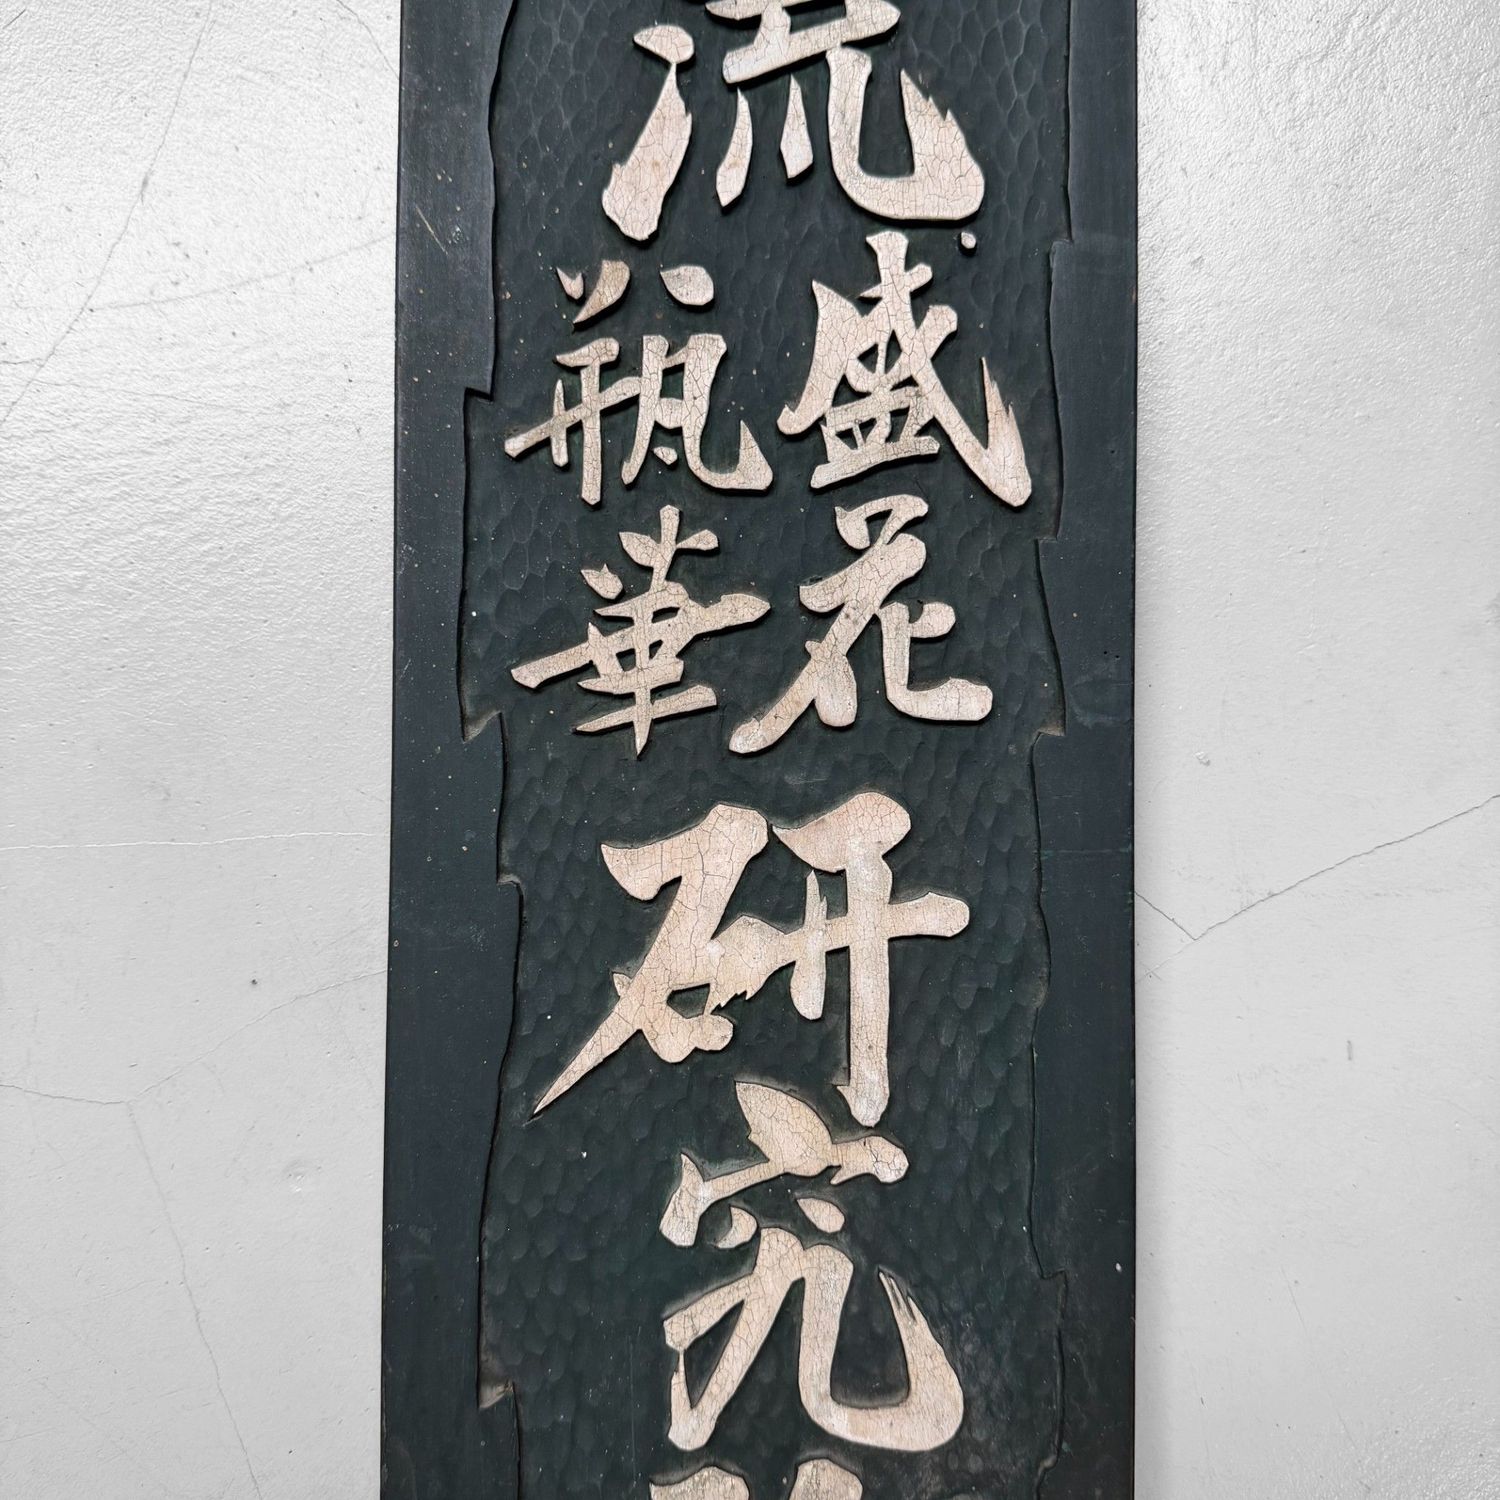 流
盛花
瓶華
研究